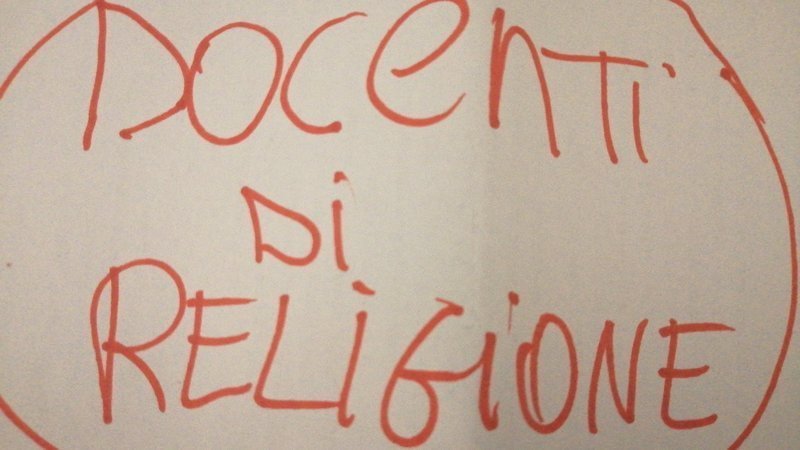 DOCenTi
Di
RELiGiONE